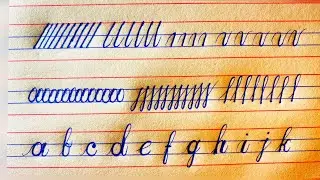 a b c d e f g h i j k